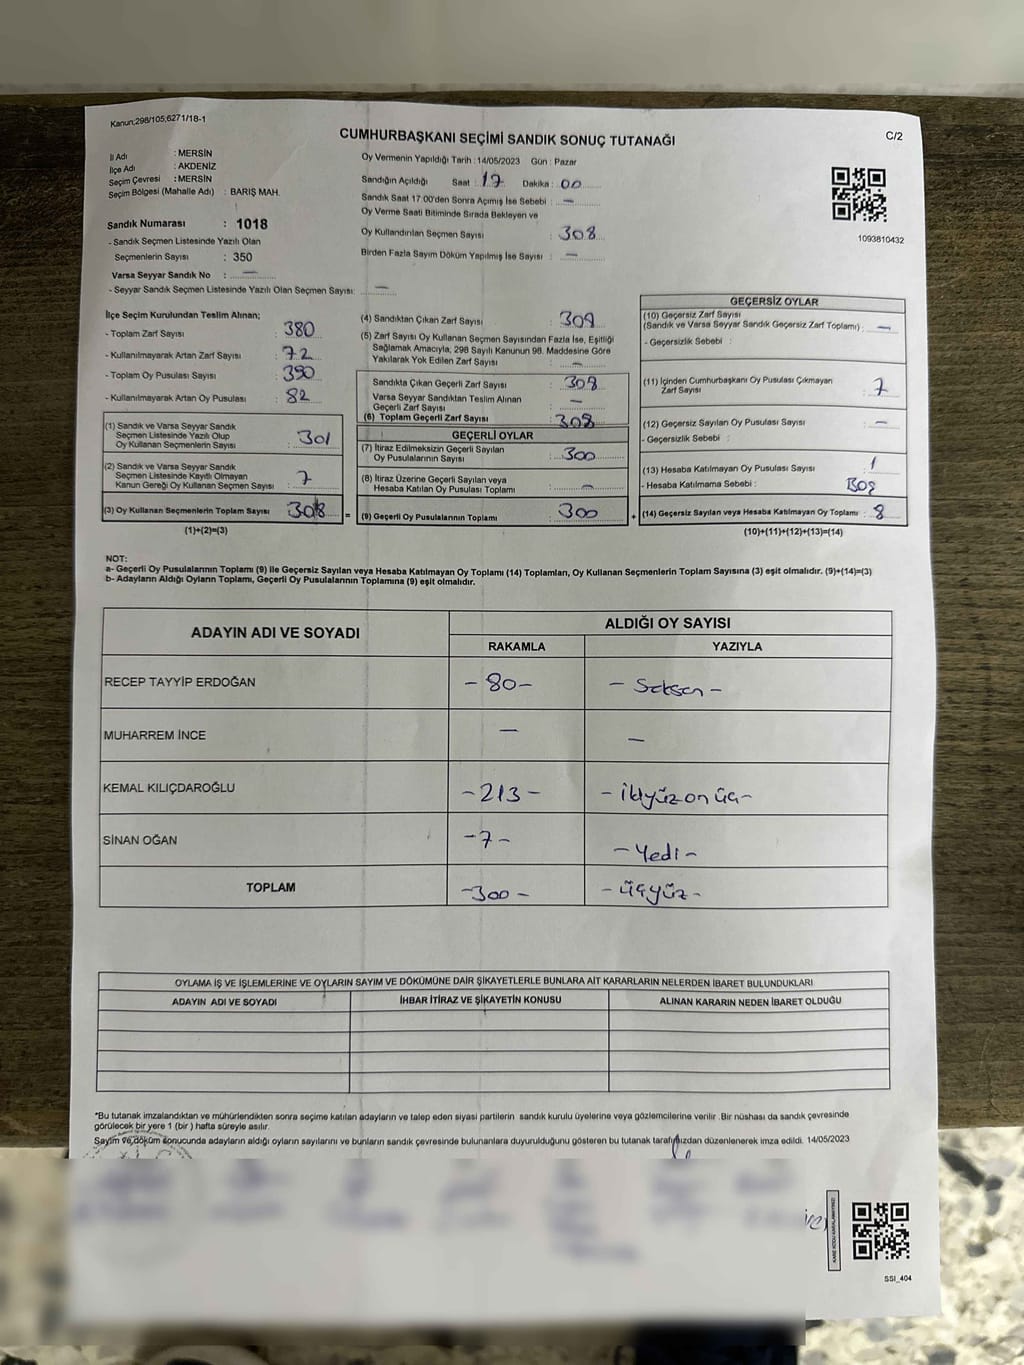 Kanun;298/105;6271/18-1
CUMHURBAŞKANI SEÇİMİ SANDIK SONUÇ TUTANAĞI
C/2
İl Adı : MERSİN
İlçe Adı : AKDENİZ
Seçim Çevresi : MERSİN
Seçim Bölgesi (Mahalle Adı) : BARIŞ MAH.
Sandık Numarası : 1018
- Sandık Seçmen Listesinde Yazılı Olan
Seçmenlerin Sayısı : 350
Varsa Seyyar Sandık No : —
- Seyyar Sandık Seçmen Listesinde Yazılı Olan Seçmen Sayısı: —
Oy Vermenin Yapıldığı Tarih : 14/05/2023 Gün : Pazar
Sandığın Açıldığı Saat : 17 Dakika : 00
Sandık Saat 17.00'den Sonra Açımış İse Sebebi : —
Oy Verme Saati Bitiminde Sırada Bekleyen ve
Oy Kullandırılan Seçmen Sayısı : 308
Birden Fazla Sayım Döküm Yapılmış İse Sayısı : —
1093810432
İlçe Seçim Kurulundan Teslim Alınan;
- Toplam Zarf Sayısı : 380
- Kullanılmayarak Artan Zarf Sayısı : 72
- Toplam Oy Pusulası Sayısı : 390
- Kullanılmayarak Artan Oy Pusulası : 82
(1) Sandık ve Varsa Seyyar Sandık
Seçmen Listesinde Yazılı Olup
Oy Kullanan Seçmenlerin Sayısı : 301
(2) Sandık ve Varsa Seyyar Sandık
Seçmen Listesinde Kayıtlı Olmayan
Kanun Gereği Oy Kullanan Seçmen Sayısı : 7
(3) Oy Kullanan Seçmenlerin Toplam Sayısı : 308 =
(1)+(2)=(3)
(4) Sandıktan Çıkan Zarf Sayısı : 308
(5) Zarf Sayısı Oy Kullanan Seçmen Sayısından Fazla İse, Eşitliği
Sağlamak Amacıyla, 298 Sayılı Kanunun 98. Maddesine Göre
Yakılarak Yok Edilen Zarf Sayısı : —
Sandıkta Çıkan Geçerli Zarf Sayısı : 308
Varsa Seyyar Sandıktan Teslim Alınan
Geçerli Zarf Sayısı : —
(6) Toplam Geçerli Zarf Sayısı : 308
GEÇERLİ OYLAR
(7) İtiraz Edilmeksizin Geçerli Sayılan
Oy Pusulalarının Sayısı : 300
(8) İtiraz Üzerine Geçerli Sayılan veya
Hesaba Katılan Oy Pusulası Toplamı : —
(9) Geçerli Oy Pusulalarının Toplamı : 300 +
GEÇERSİZ OYLAR
(10) Geçersiz Zarf Sayısı
(Sandık ve Varsa Seyyar Sandık Geçersiz Zarf Toplamı) : —
- Geçersizlik Sebebi :
(11) İçinden Cumhurbaşkanı Oy Pusulası Çıkmayan
Zarf Sayısı : 7
(12) Geçersiz Sayılan Oy Pusulası Sayısı : —
- Geçersizlik Sebebi :
(13) Hesaba Katılmayan Oy Pusulası Sayısı : 1
- Hesaba Katılmama Sebebi : Boş
(14) Geçersiz Sayılan veya Hesaba Katılmayan Oy Toplamı : 8
(10)+(11)+(12)+(13)=(14)
NOT:
a- Geçerli Oy Pusulalarının Toplamı (9) ile Geçersiz Sayılan veya Hesaba Katılmayan Oy Toplamı (14) Toplamları, Oy Kullanan Seçmenlerin Toplam Sayısına (3) eşit olmalıdır. (9)+(14)=(3)
b- Adayların Aldığı Oyların Toplamı, Geçerli Oy Pusulalarının Toplamına (9) eşit olmalıdır.
ADAYIN ADI VE SOYADI ALDIĞI OY SAYISI
RAKAMLA YAZIYLA
RECEP TAYYİP ERDOĞAN -80- - Seksen -
MUHARREM İNCE — —
KEMAL KILIÇDAROĞLU -213- - İkiyüz on üç -
SİNAN OĞAN -7- - Yedi -
TOPLAM -300- - üçyüz -
OYLAMA İŞ VE İŞLEMLERİNE VE OYLARIN SAYIM VE DÖKÜMÜNE DAİR ŞİKAYETLERLE BUNLARA AİT KARARLARIN NELERDEN İBARET BULUNDUKLARI
ADAYIN ADI VE SOYADI İHBAR İTİRAZ VE ŞİKAYETİN KONUSU ALINAN KARARIN NEDEN İBARET OLDUĞU
*Bu tutanak imzalandıktan ve mühürlendikten sonra seçime katılan adayların ve talep eden siyasi partilerin sandık kurulu üyelerine veya gözlemcilerine verilir .Bir nüshası da sandık çevresinde
görülecek bir yere 1 (bir ) hafta süreyle asılır.
Sayım ve döküm sonucunda adayların aldığı oyların sayılarını ve bunların sandık çevresinde bulunanlara duyurulduğunu gösteren bu tutanak tarafımızdan düzenlenerek imza edildi. 14/05/2023
SSI_404